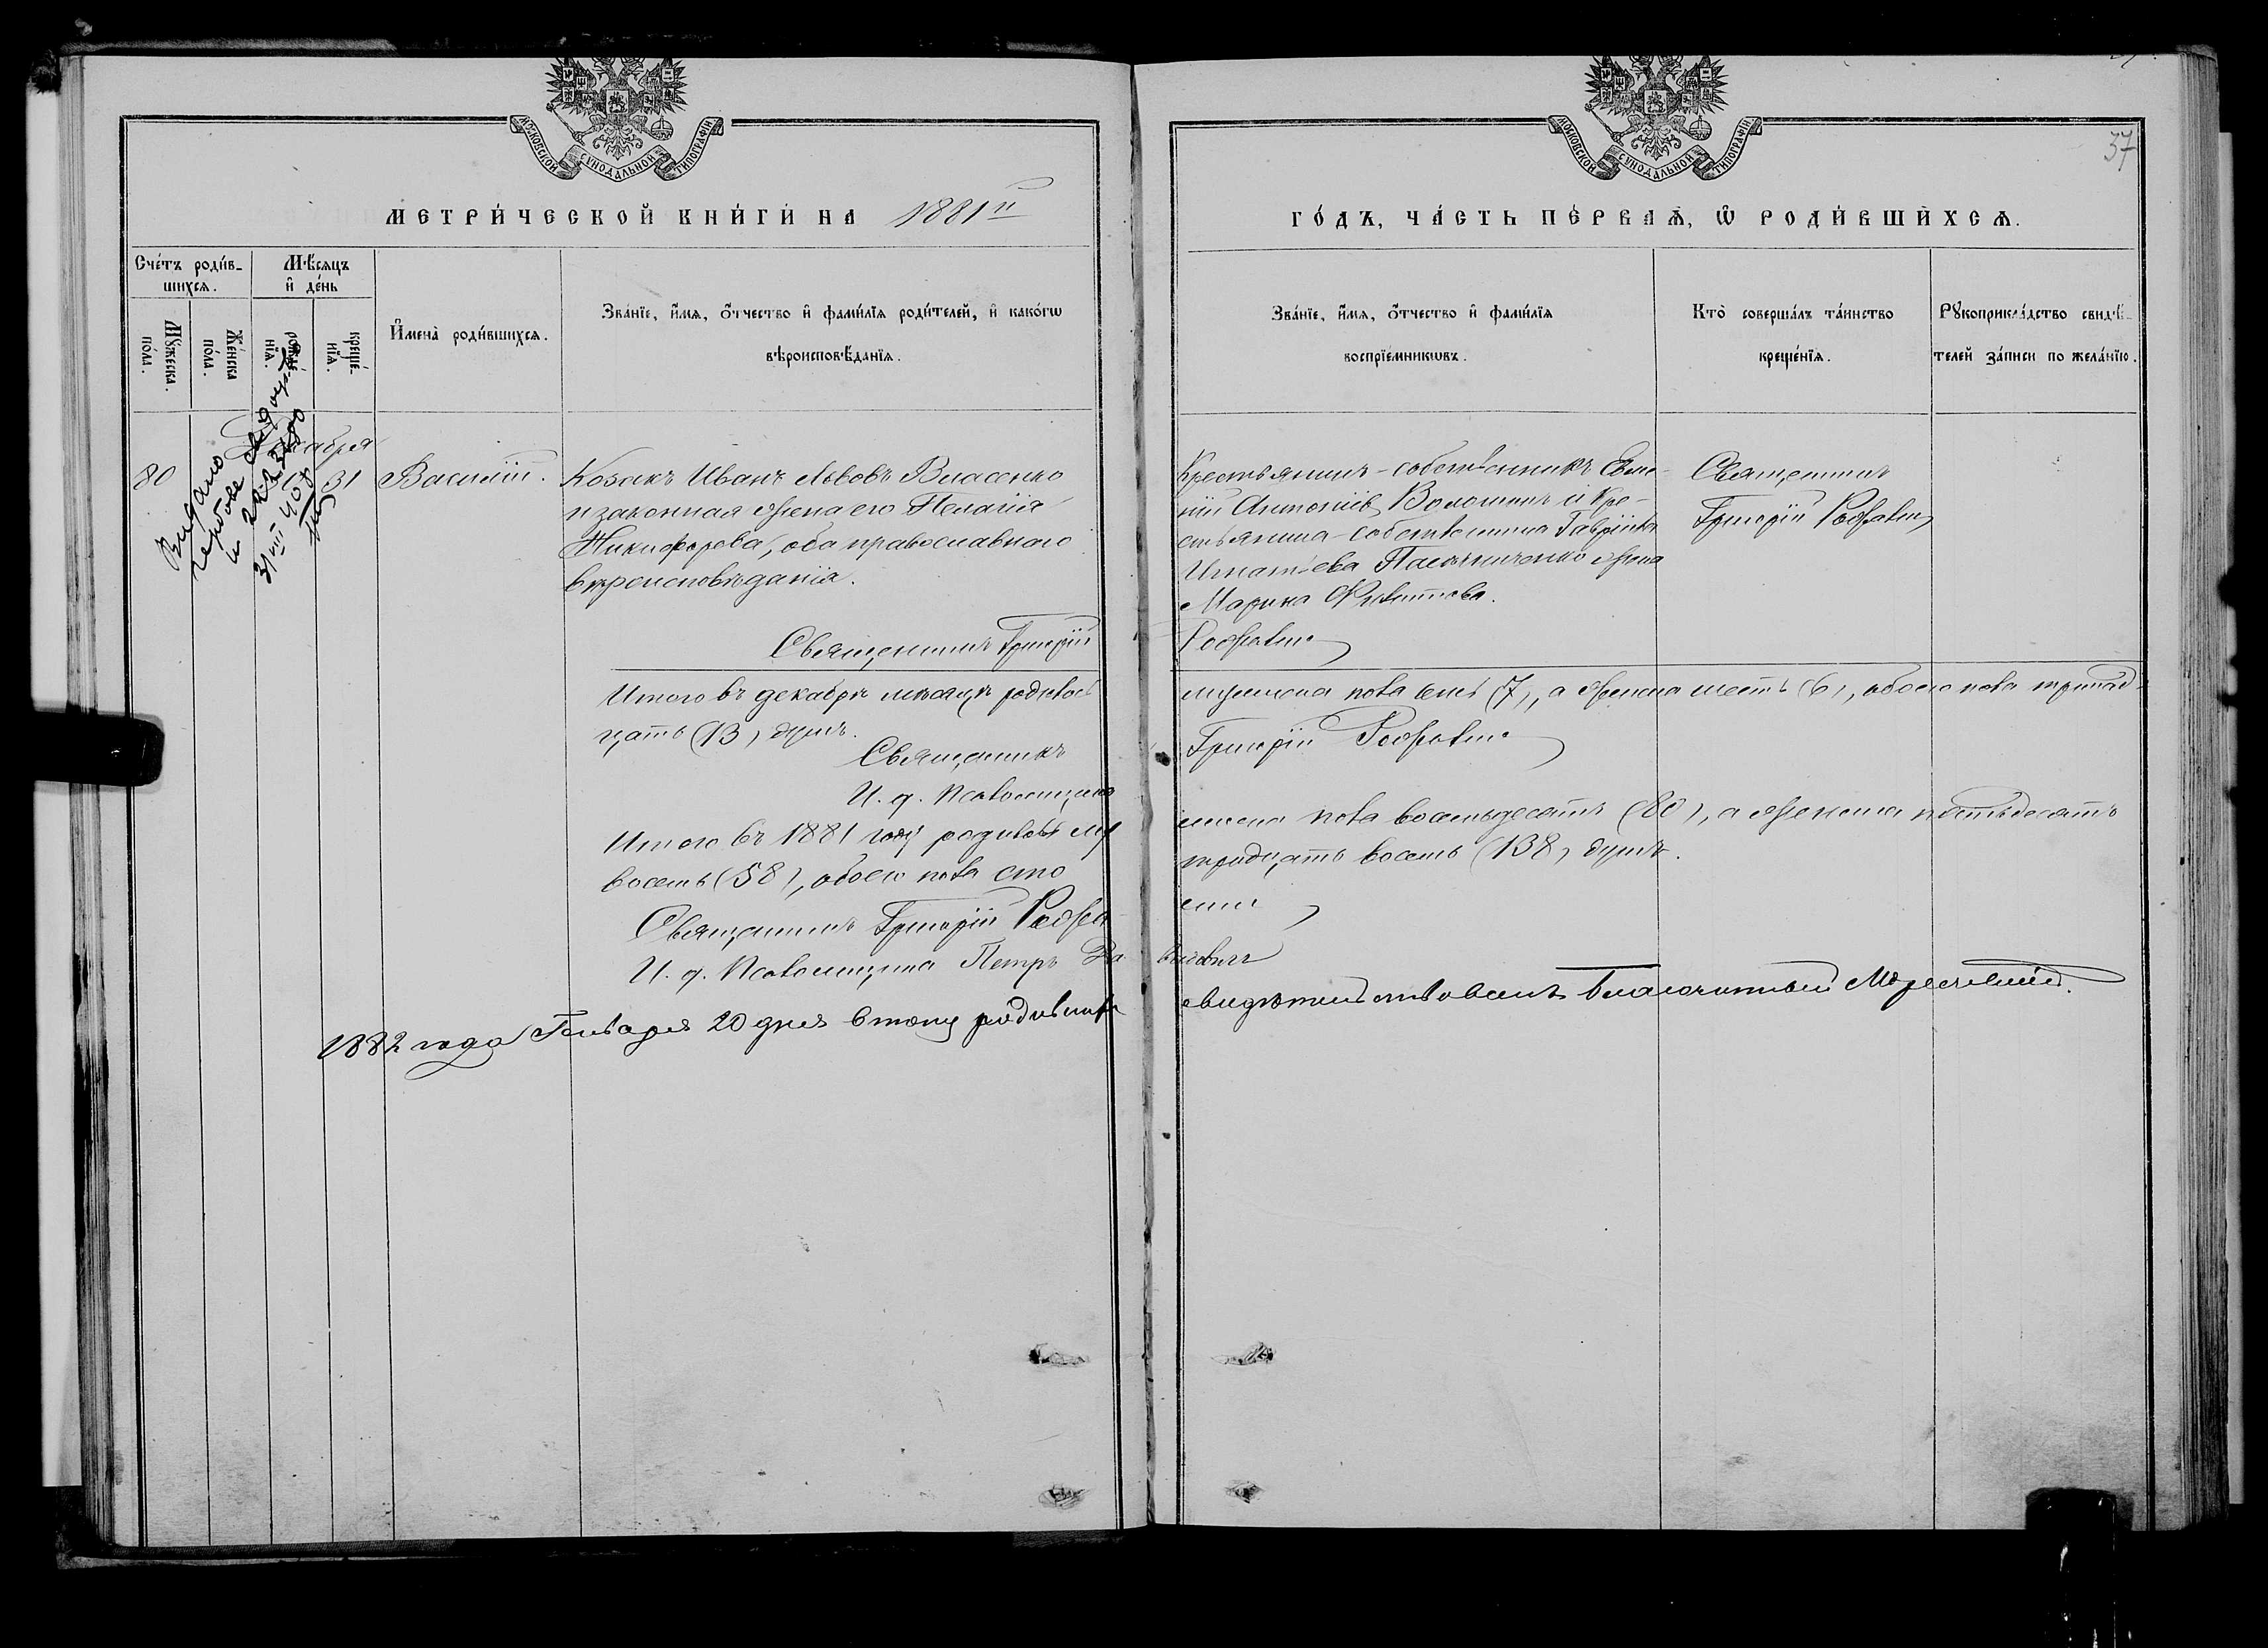 МОСКОВСКОЙ СУНОДАЛЬНОЙ ТИПОГРАФІИ
МЕТРИ́ЧЕСКОЙ КНИ́ГИ НА 1881й
Сче́тъ роди́в-
шихсѧ.
Мѣ́сѧцъ
и҆ де́нь
Мꙋ́жеска по́ла.
Же́нска по́ла.
рожде́нїѧ.
креще́нїѧ.
И҆мена̀ роди́вшихсѧ.
Зва́нїе, и҆́мѧ, ѻ҆́тчество и҆ фами́лїѧ роди́телей, и҆ како́гѡ
вѣроисповѣ́данїѧ.
Декабря
80
31
Василій.
Козакъ Иванъ Львовъ Власенко
и законная жена его Пелагія
Никифорова, оба православнаго
вѣроисповѣданія.
Священникъ Григорій
Итого въ декабрѣ мѣсяцѣ родилось
цать (13) душъ.
Священникъ
И. д. Псаломщика
Итого въ 1881 году родилось му
восемь (58), обоего пола сто
Священникъ Григорій
И. д. Псаломщика Петръ
1882 года Генваря 20 дня
Видано
31 VIII 40 р
МОСКОВСКОЙ СУНОДАЛЬНОЙ ТИПОГРАФІИ
37
ГО́ДЪ, ЧА́СТЬ ПЕ́РВАѦ, Ѡ҆ РОДИ́ВШИХСѦ.
Зва́нїе, и҆́мѧ, ѻ҆́тчество и҆ фами́лїѧ
воспрїе́мникѡвъ.
Кто̀ соверша́лъ та́инство
креще́нїѧ.
Рꙋкоприкла́дство свидѣ́-
телей за́писи по жела́нїю.
Крестьянинъ-собственникъ
Антоніевъ Волошинъ и кре-
стьянина-собственника Гавріила
Игнатьева жена
Марина
Священникъ
Григорій
мужеска пола семь (7), а женска шесть (6), обоего пола тринад-
Григорій
жеска пола восемьдесятъ (80), а женска пятьдесятъ
тридцать восемь (138) душъ.
свидѣтельствовалъ Благочинный